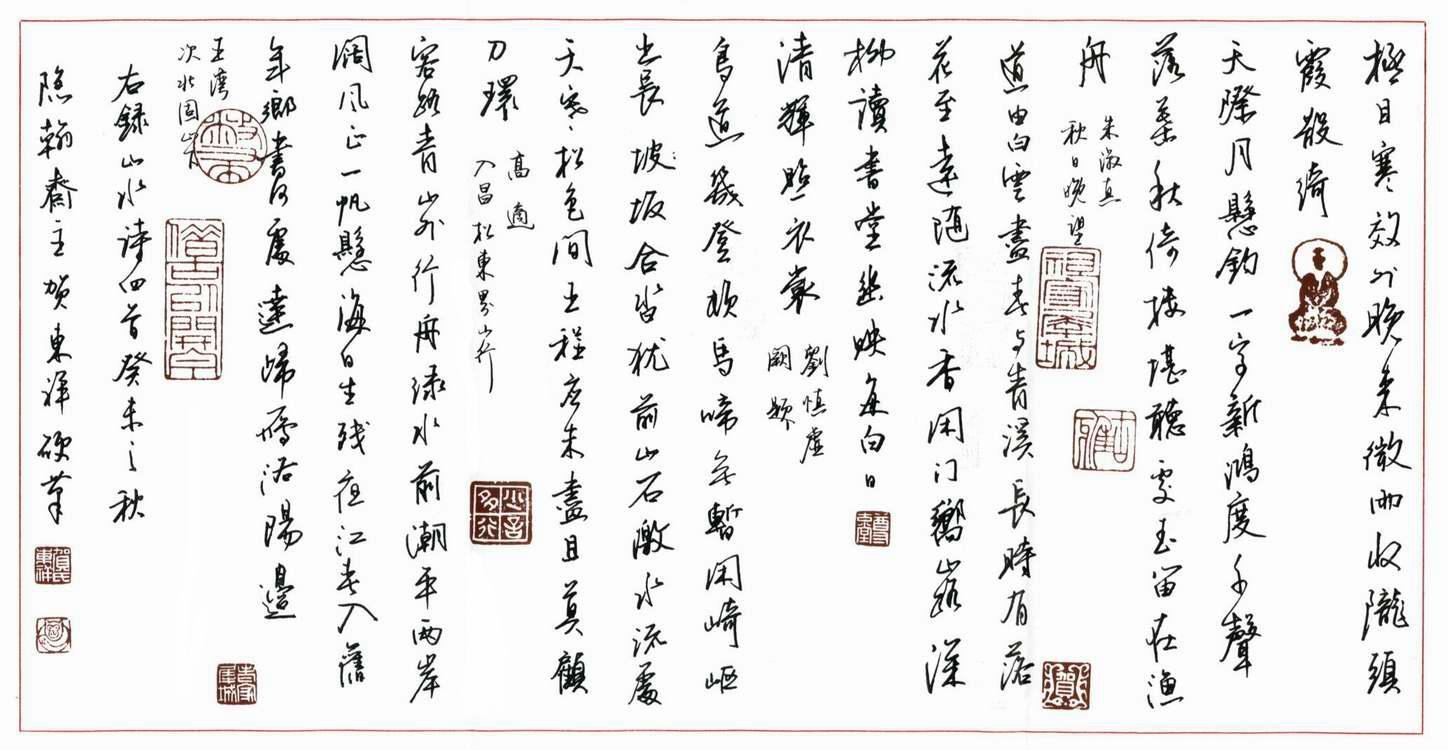 極目寒郊外晚來微雨收隴頭
霞散綺
天際月懸鈎一字新鴻度千聲
落葉秋倚樓堪聽處玉笛在漁
舟
朱淑真
秋日晚望
道由白雲盡春与青溪長時有落
花至遠随流水香闲门嚮山路深
柳讀書堂幽映每白日
清輝照衣裳
劉慎虛
闕題
鳥道幾登頓馬啼無暫闲崎嶇
出長坡坂合沓犹前山石激水流處
天寒松色間王程应未盡且莫顧
刀環
高適
入昌松東界山行
客路青山外行舟绿水前潮平兩岸
闊风正一帆懸海日生残夜江春入舊
年鄉書何處達歸雁洛陽邊
王灣
次北固山下
右錄山水詩四首癸未之秋
隐翰齋主賀東祥硬筆
少言多行
賀氏東祥